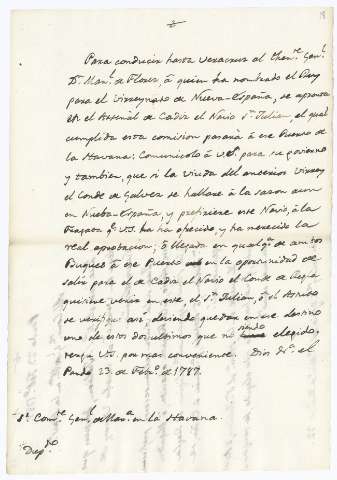 18
Para conducir hasta Veracruz al Then.te Gen.l
D.n Man.l de Florez, á quien ha nombrado el Rey
para el Virreynato de Nueva-España, se apronta
en el Arsenal de Cadiz el Navio S.n Julian, el qual
cumplida esta comision pasará á ese Puerto de
la Havana: Comunicolo á V.S. para su govierno
y tambien, que si la Viuda del anterior Virrey
el Conde de Galvez se hallare á la sazon aun
en Nueba-España, y prefiriere este Navio, á la
Fragata q.e V.S. ha ofrecido, y ha merecido la
real aprobacion; ó llegada en qualq.a de ambos
Buques á ese Puerto en la oportunidad de
salir para el de Cadiz el Navio el Conde de Regla
quisiere venir en este, el S.n Julian, ó el
se verifique asi debiendo quedar en ese destino
uno de estos dos ultimos que no siendo elegido,
tenga V.S. por mas conveniente. Dios g.e el
Pardo 23 de Feb.o de 1787.
S.r Com.te Gen.l de Mar.a en la Havana.
Dup.do